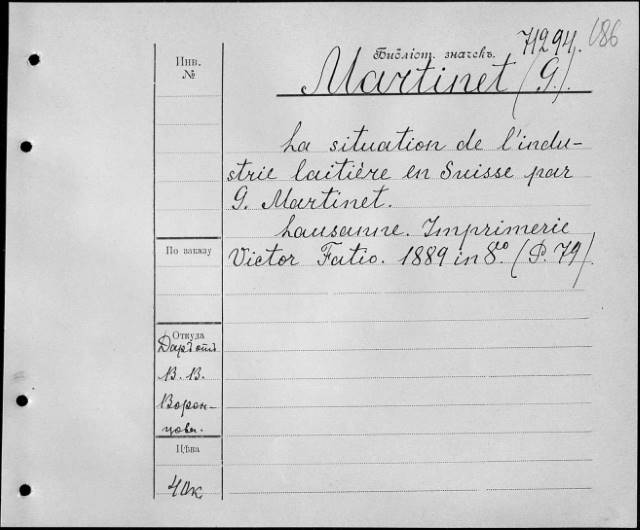 71294. 686
Библіот. значекъ.
Martinet (G.).
Инв.
№
La situation de l'indu-
strie laitière en Suisse par
G. Martinet.
Lausanne. Imprimerie
Victor Fatio. 1889 in 8º. (P. 79).
По заказу
Откуда
Даръ отъ
В. В.
Ворон-
цова.
Цѣна
40к